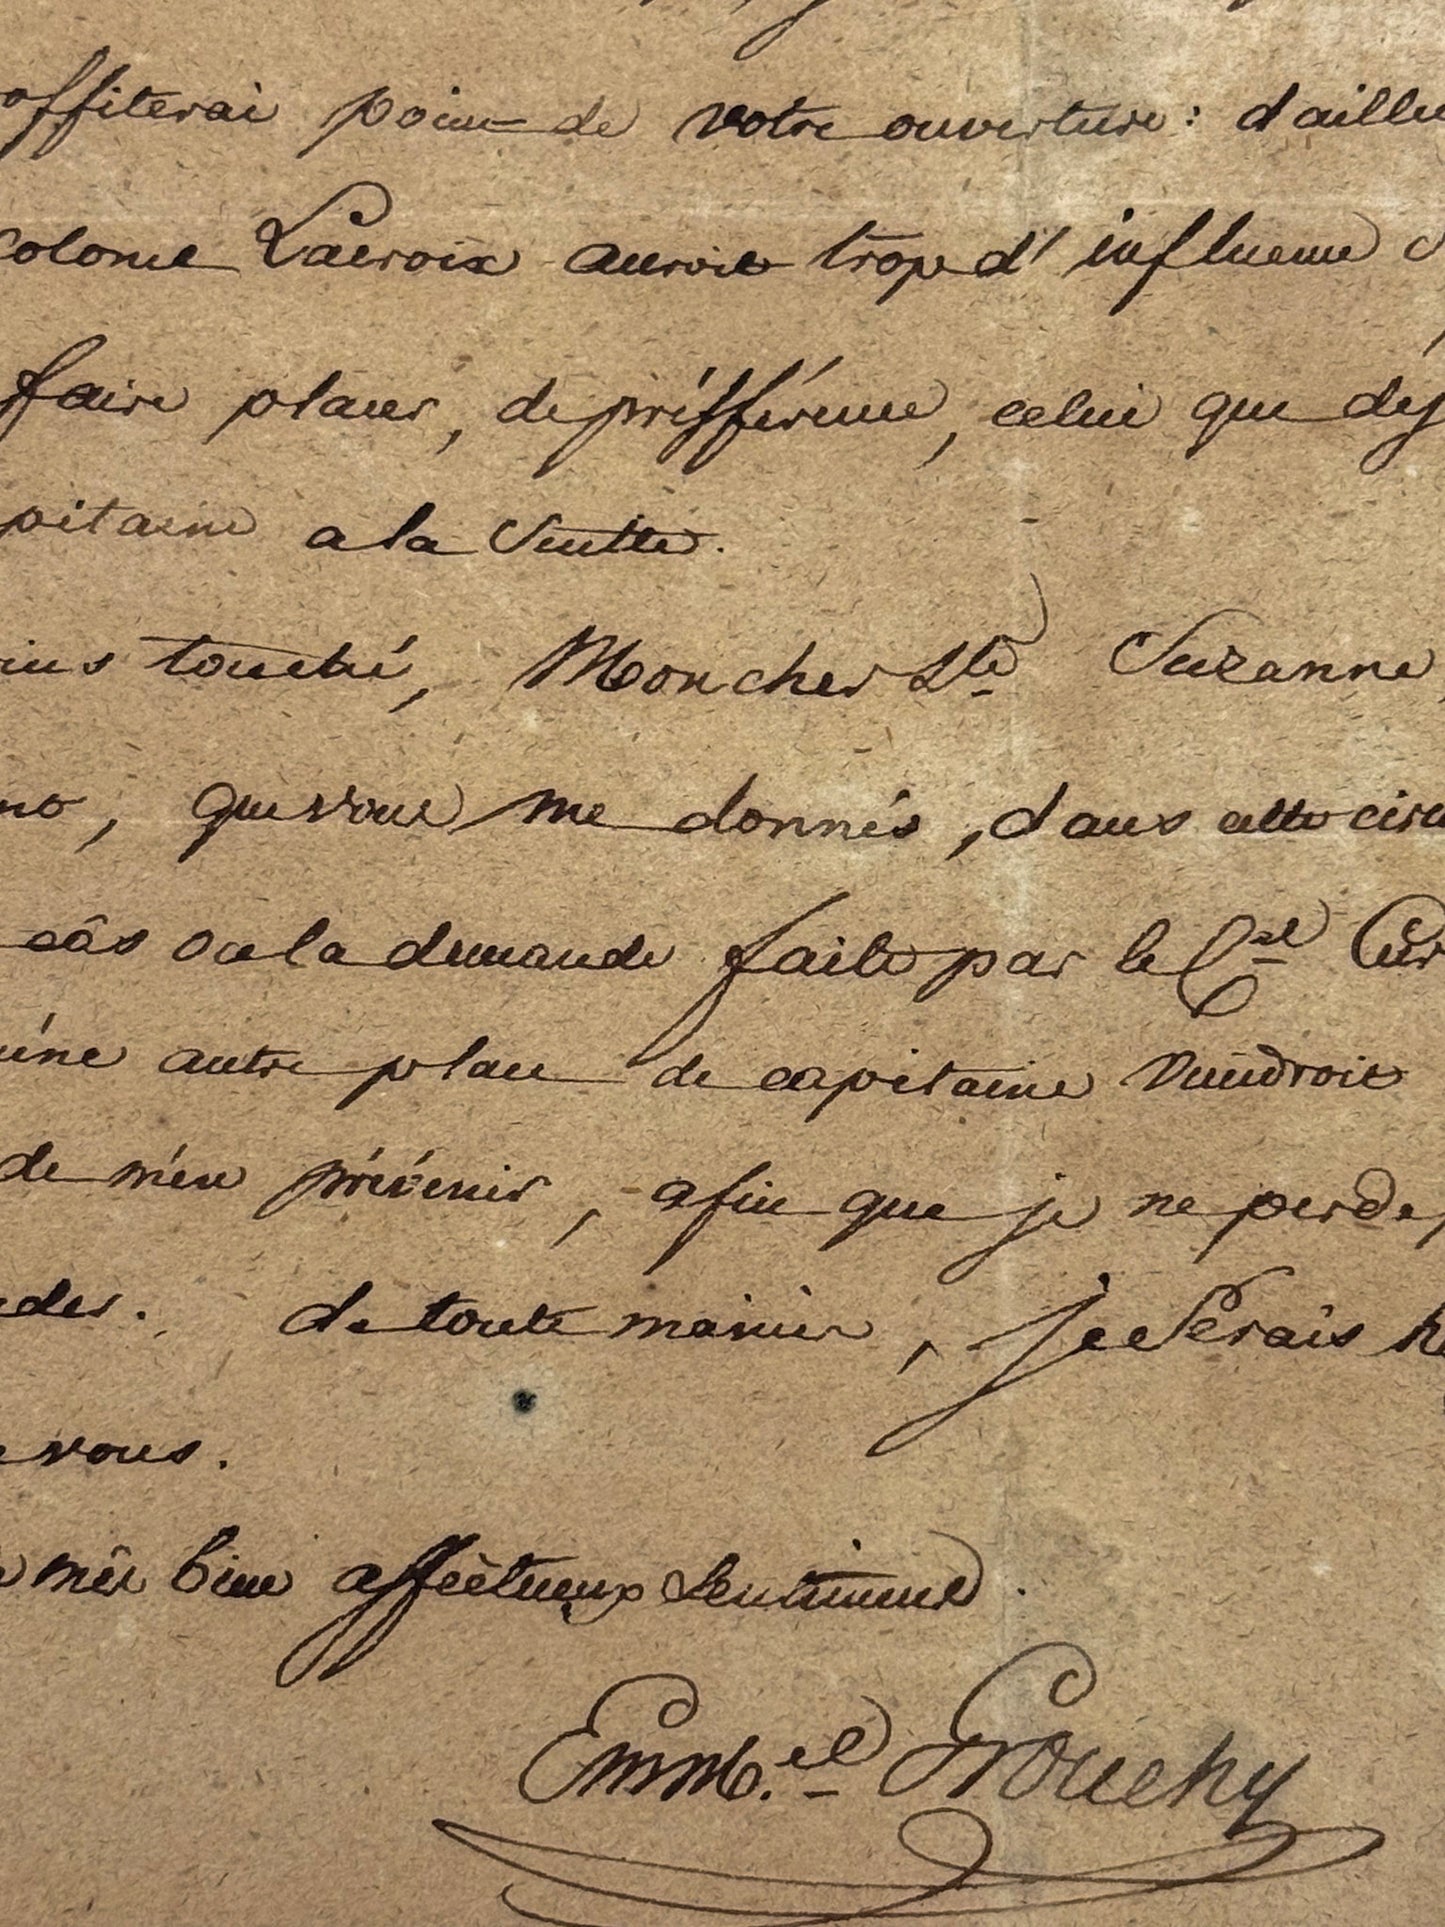 offiterai point de votre ouverture : d'ailleu
colonel Lacroix auroit trop d'influence
faire placer, de préfférence, celui que déj
pitaine a la Suitte.
touché, Mon cher Ste Suzanne
que vous me donnés, dans cette circ
câs ou la demande faite par le Cel Cur
une autre place de capitaine viendroit
de m'en prévenir, afin que je ne perde
de toute manière, je serais h
vous.
mes bien affectueux sentimens.
Emml. Grouchy